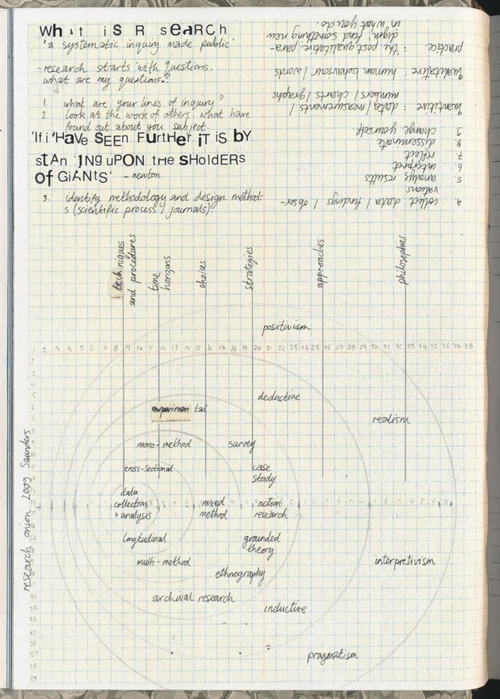 What is Research
'a systematic inquiry made public'
- research starts with questions.
what are my questions?
1. what are your lines of inquiry?
2. look at the work of others, what have
found out about you subject.
'If i 'HaVe SEEN FurtHer iT iS bY
stAn 'JNg uPON the SHolDERS
of GiANTS' - newton
3. identify methodology and design method
s (scientific process / journals)
4. collect data / findings / obser-
vations
5. analyse results
6. interpret
7. reflect
8. disseminate
9. change yourself
quantitive : data / measurements /
numbers / charts / graphs
qualitative : human behaviour / words
practice : the post qualitative para-
digm, find something new
in what you do
techniques
and procedures
time
horizons
choices
strategies
approaches
philosophies
positivism
deductive
experimental
realism
mono-method
survey
cross-sectional
case
study
data
collection
+ analysis
mixed
method
action
research
longitudinal
grounded
theory
multi-method
interpretivism
ethnography
archival research
inductive
pragmatism
research onion 2009 Saunders